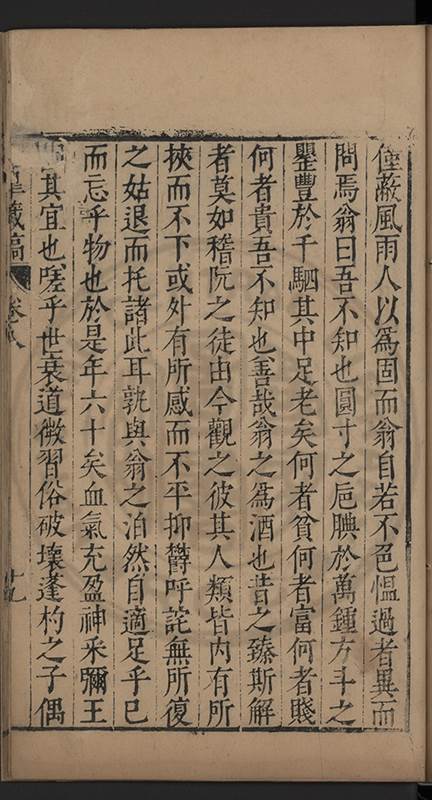 僅蔽風雨人以爲固而翁自若不色慍過者異而
問焉翁曰吾不知也圓寸之巵腆於萬鍾方斗之
罌豐於千駟其中足老矣何者貧何者富何者賤
何者貴吾不知也善哉翁之爲酒也昔之臻斯解
者莫如稽阮之徒由今觀之彼其人類皆内有所
挾而不下或外有所感而不平抑欎呼詫無所復
之姑退而托諸此耳孰與翁之泊然自適足乎已
而忘乎物也於是年六十矣血氣充盈神采彌王
其宜也嗟乎世衰道微習俗破壞蓬杓之子偶
藏稿
卷
十九